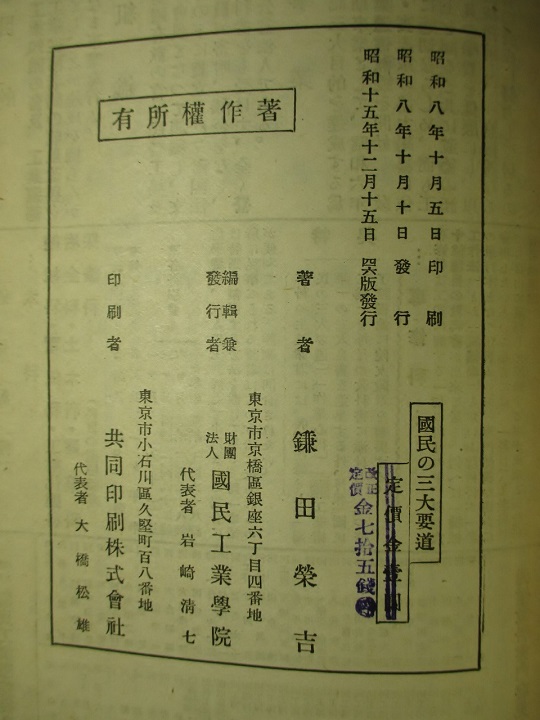 昭和八年十月五日印刷
昭和八年十月十日發行
昭和十五年十二月十五日 四版發行
國民の三大要道
定價金壹圓
改正定價金七拾五錢
著作權所有
著者 鎌田榮吉
東京市京橋區銀座六丁目四番地
編輯兼發行者 財團法人 國民工業學院
代表者 岩崎淸七
東京市小石川區久堅町百八番地
印刷者 共同印刷株式會社
代表者 大橋松雄